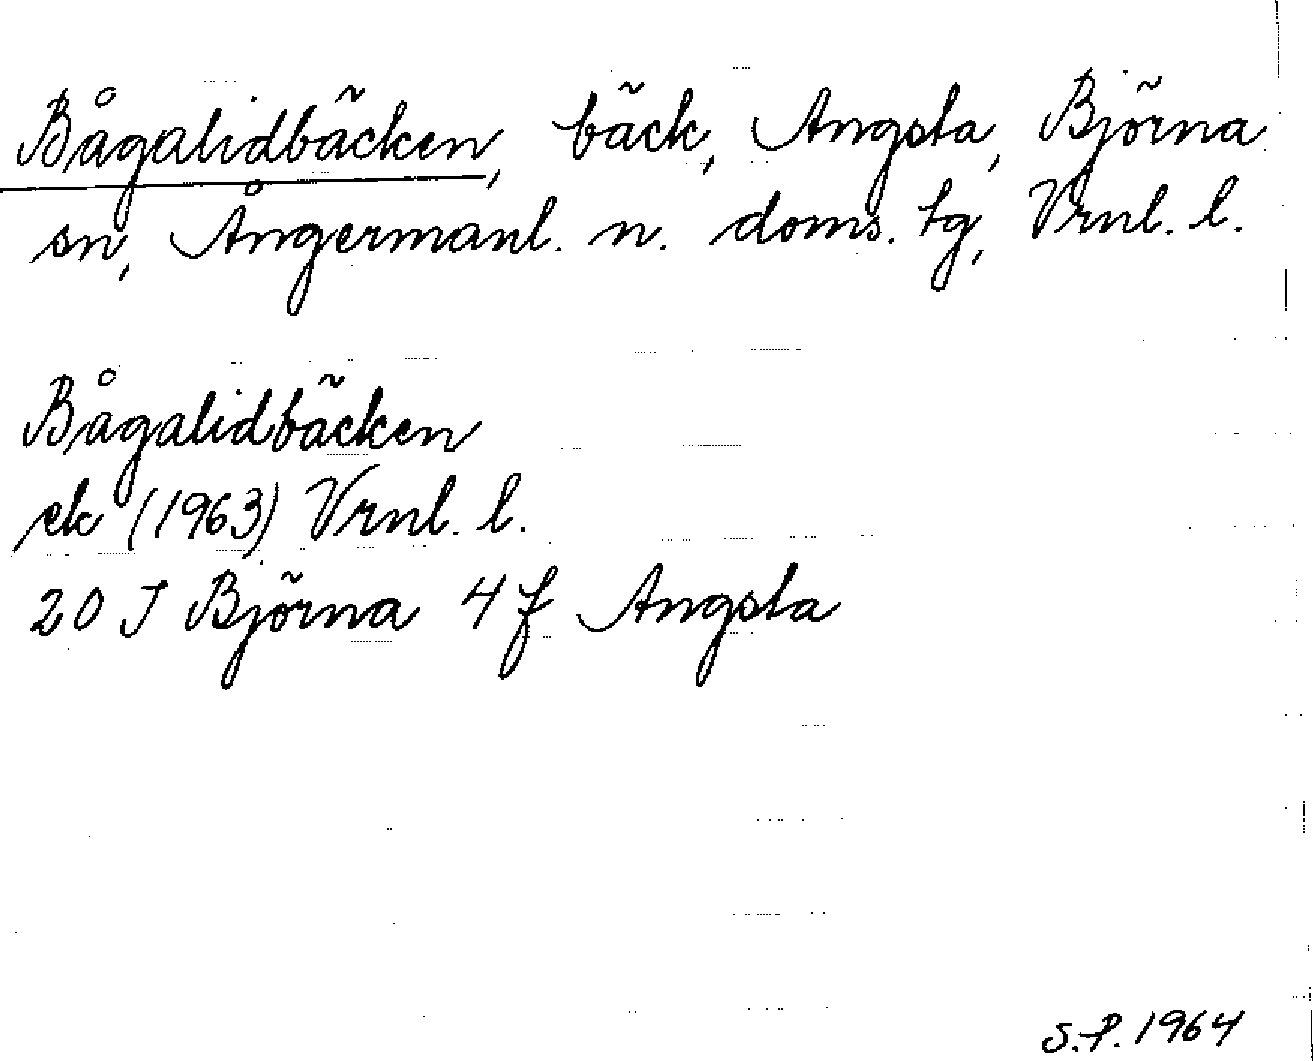 Bågalidbäcken, bäck, Angsta, Björna
sn, Ångermanl. n. doms. tg, Vrnl. l.
Bågalidbäcken
ek (1963) Vrnl. l.
20 J Björna 4 f Angsta
S.P. 1964